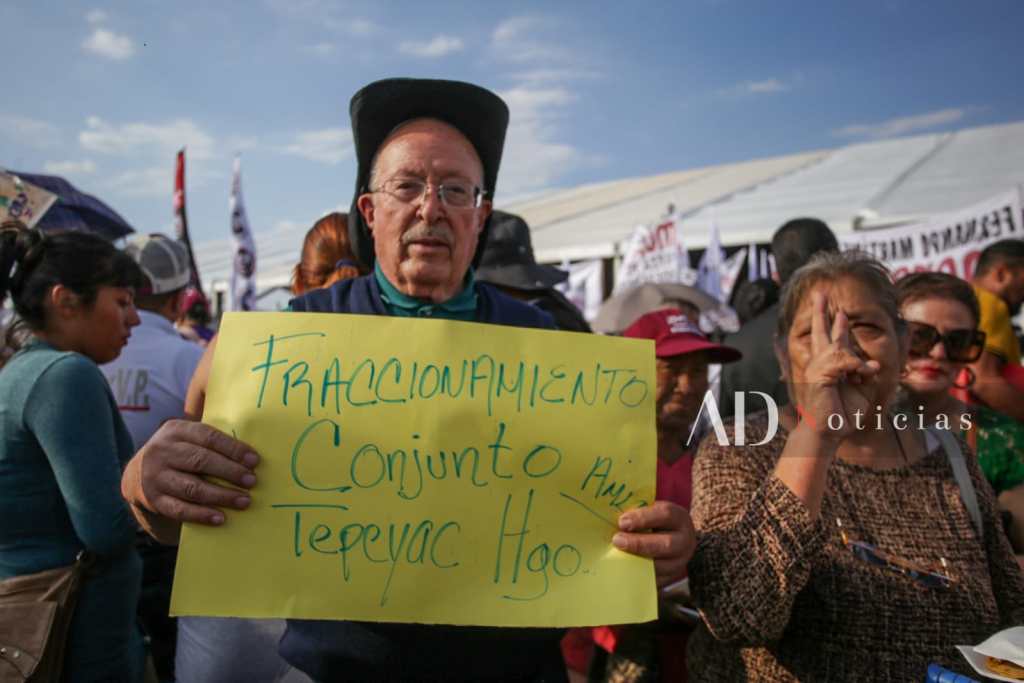 FRACCIONAMIENTO
Conjunto
Tepeyac Hgo.
AD Noticias
FERNANDO
.V.P.